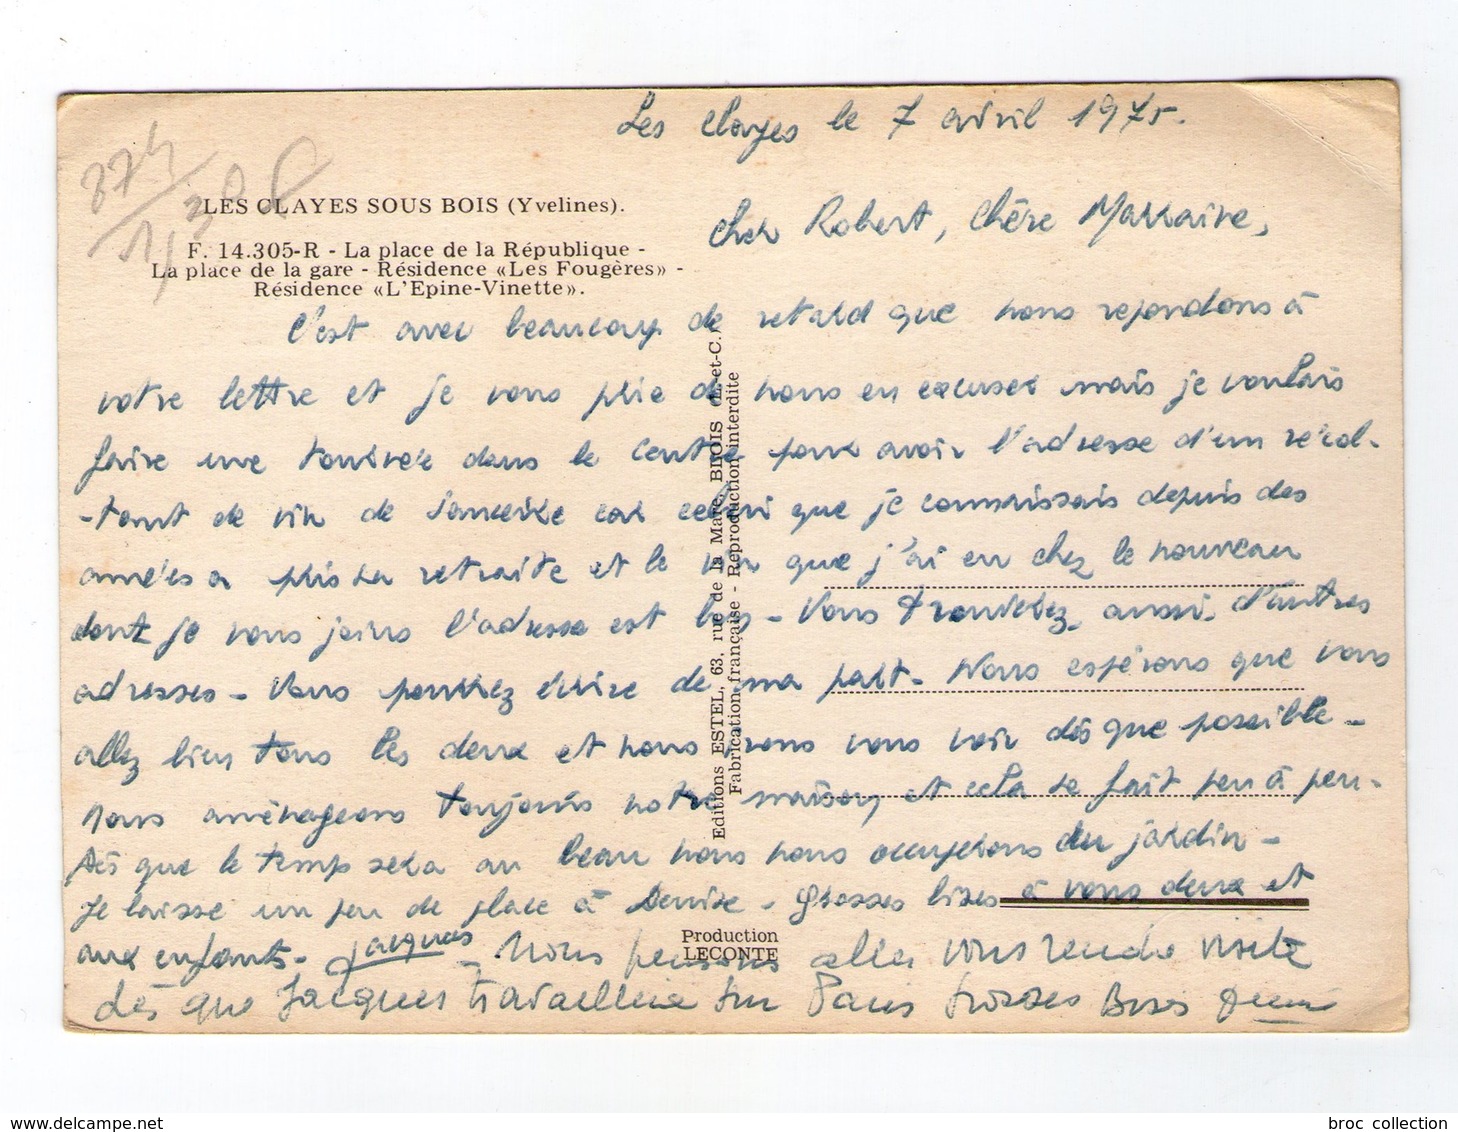 Les Clayes le 7 avril 1975.
LES CLAYES SOUS BOIS (Yvelines).
F. 14.305-R - La place de la République -
La place de la gare - Résidence «Les Fougères» -
Résidence «L'Epine-Vinette».
Cher Robert, Chère Marraine,
C'est avec beaucoup de retard que nous repondons à
votre lettre et je vous prie de nous en excuser mais je voulais
faire une tournée dans le centre pour avoir l'adresse d'un récol-
-tant de vin de Sancerre car celui que je connaissais depuis des
années a pris sa retraite et le vin que j'ai eu chez le nouveau
dont je vous joins l'adresse est bon - Vous trouverez aussi d'autres
adresses - Vous pourrez écrire de ma part. Nous espérons que vous
allez bien tous les deux et nous irons vous voir dès que possible -
Nous aménageons toujours notre maison et cela se fait peu à peu -
Dès que le temps sera au beau nous nous occuperons du jardin -
Je laisse un peu de place à Denise - Grosses bises à vous deux et
aux enfants - Jacques - Nous pensons aller vous rendre visite
dès que Jacques travaillera sur Paris Grosses Bises Denise
Editions ESTEL, 63, rue de la Mare, BLOIS (L.-et-C.)
Fabrication française - Reproduction interdite
Production
LECONTE
delcampe.net
broc collection